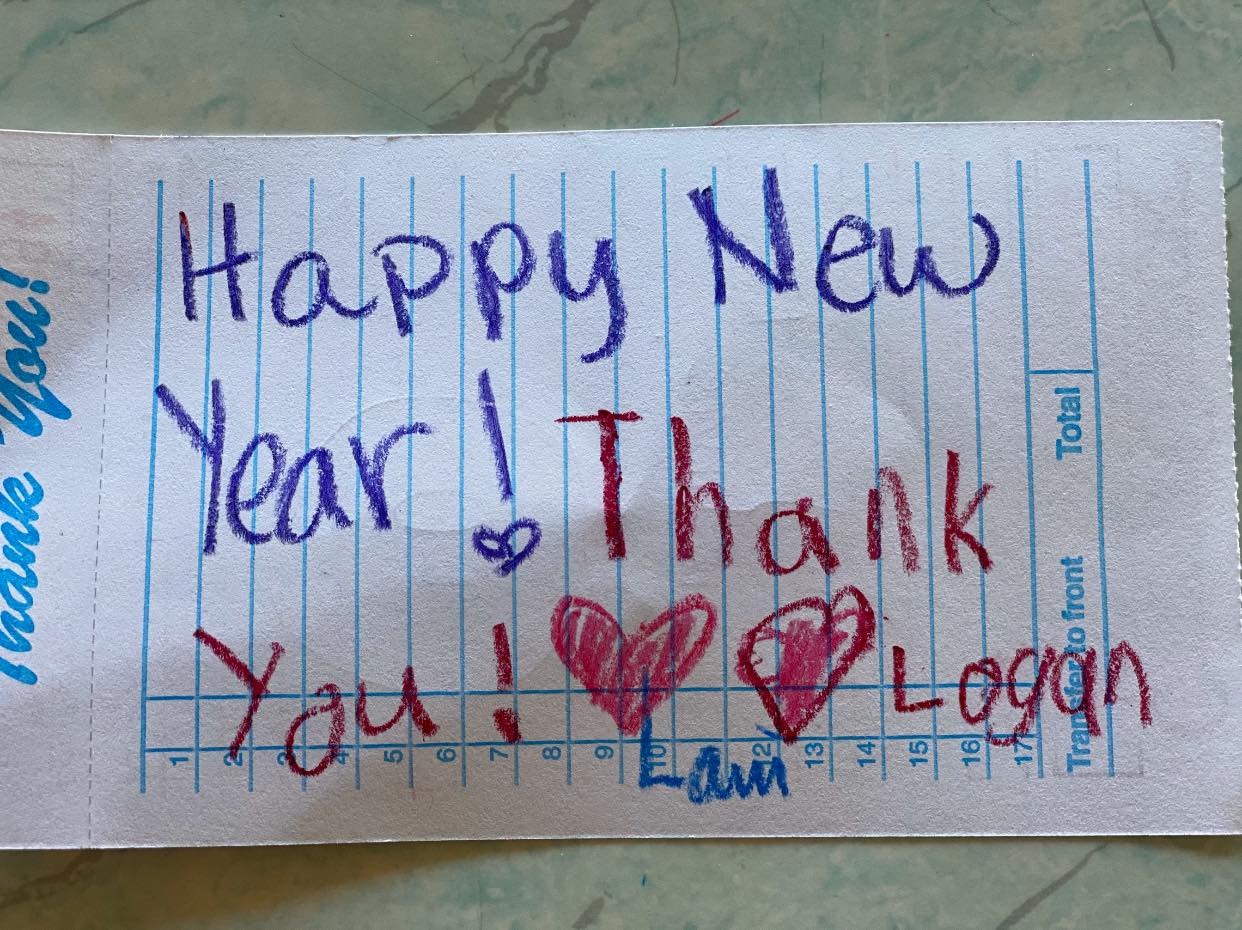 Happy New
Year! Thank
You! Logan
Lami
Thank You!
Total
Transfer to front
1 2 3 4 5 6 7 8 9 10 12 13 14 15 16 17